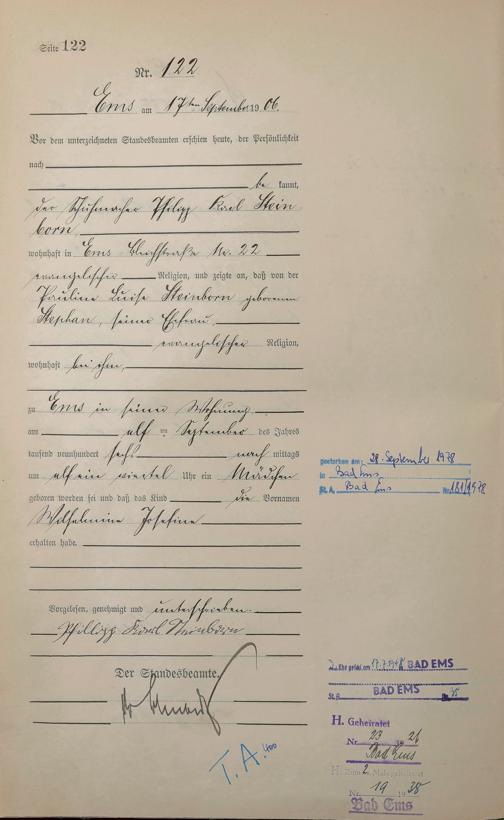 Seite 122
Nr. 122
Ems am 17ten September 1906.
Vor dem unterzeichneten Standesbeamten erschien heute, der Persönlichkeit
nach
be kannt,
der Schuhmacher Philipp Karl Stein
born
wohnhaft in Ems Bleichstraße Nr. 22
evangelischer Religion, und zeigte an, daß von der
Pauline Luise Steinborn geborenen
Stephan, seiner Ehefrau
evangelischer Religion,
wohnhaft bei ihm,
zu Ems in seiner Wohnung
am elf ten September des Jahres
tausend neunhundert sechs nach mittags
um elf ein viertel Uhr ein Mädchen
geboren worden sei und daß das Kind die Vornamen
Wilhelmine Josefine
erhalten habe.
Vorgelesen, genehmigt und unterschrieben.
Philipp Karl Steinborn
Der Standesbeamte.
gestorben am: 28. September 1978
in Bad Ems
St. A. Bad Ems Nr. 181/1978
BAD EMS
St. A. BAD EMS Nr.
H. Geheiratet
Nr. 23 26
Bad Ems
H. Zum 2. Male geheiratet
Nr. 19 1938
Bad Ems
T. A.